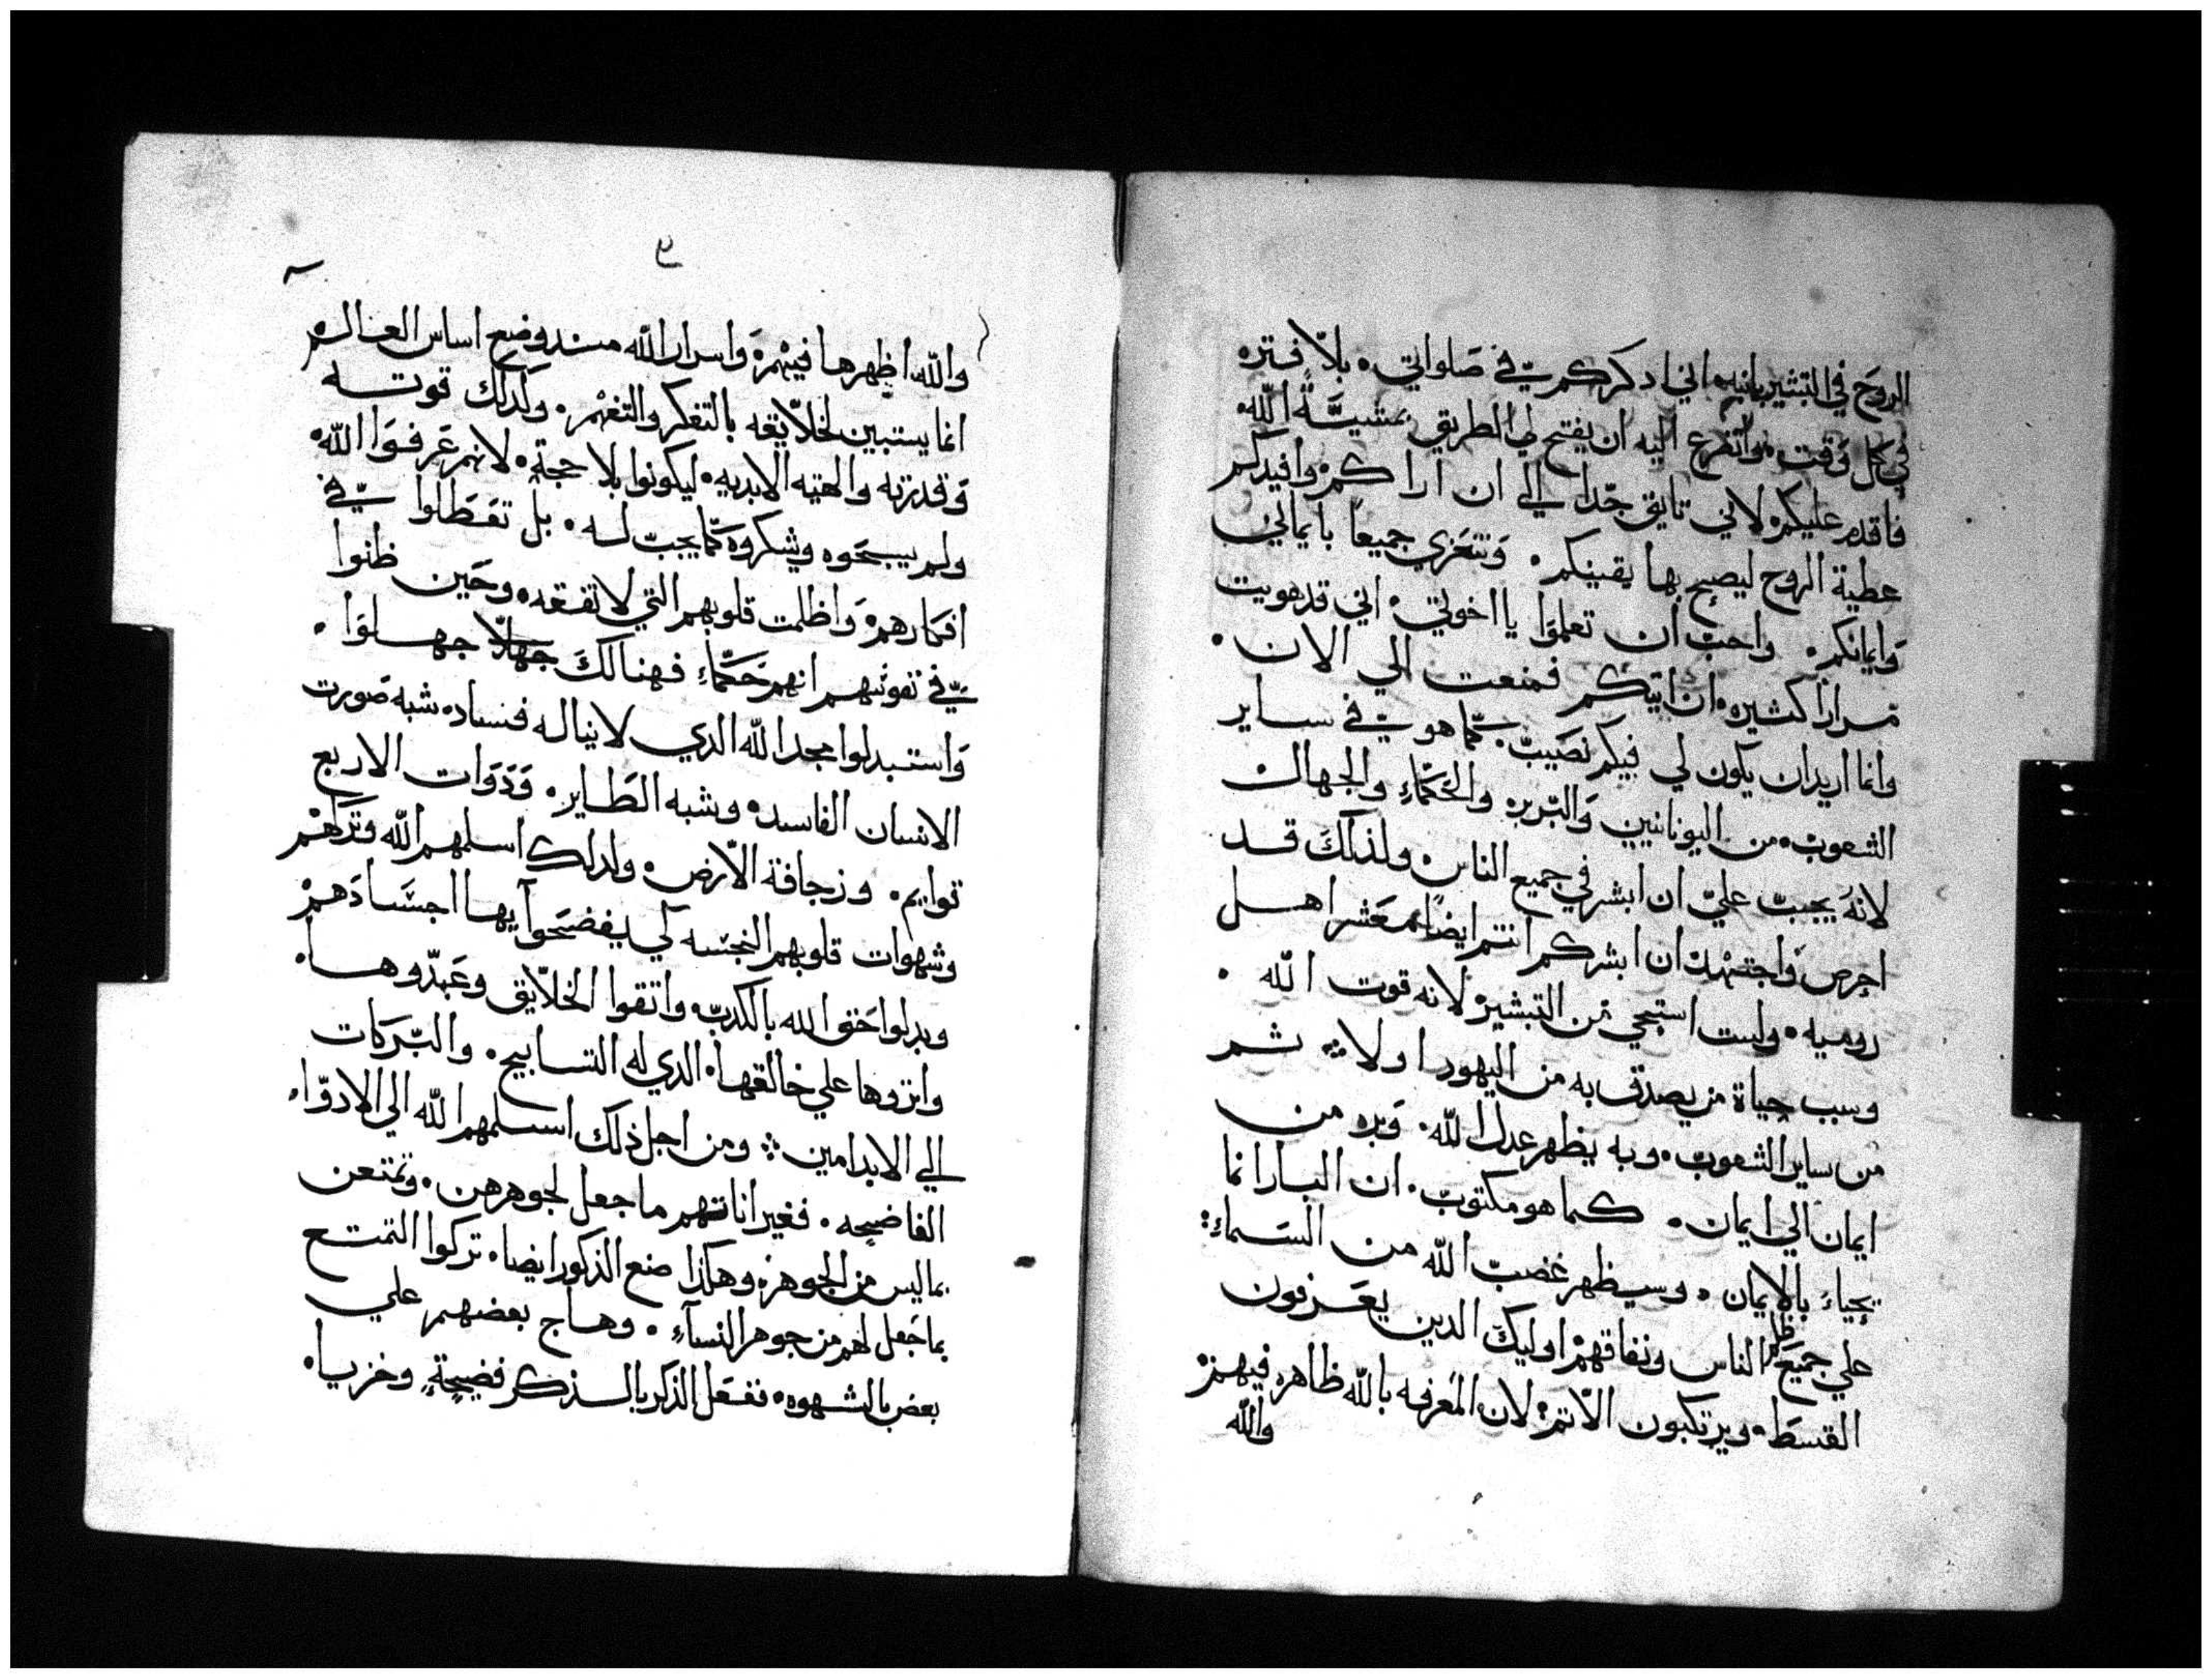 الروح في التبشير بابنه اني ادكركم في صلواتي. بلا فتره
في كل وقت. واتضرع اليه ان يفتح لي الطريق بمشية الله.
فاقدم عليكم لاني تايق جدا الي ان اراكم وافيدكم
عطية الروح ليصح بها يقينكم. ونتعزي جميعا بايماني
وايمانكم. واحب ان تعلموا يا اخوتي. اني قد هويت
مرارا كثيره ان اتيكم فمنعت الي الان.
وانما اريد ان يكون لي فيكم نصيب. كما هو في ساير
الشعوب. من اليونانيين والبربر والحكماء والجهال
لانه يجب علي ان ابشر في جميع الناس. ولذلك قد
احرص واجتهد ان ابشركم انتم ايضا معشر اهل
روميه. ولست استحي من التبشير لانه قوت الله.
وسبب حياة من يصدق به من اليهود اولا ثم
من ساير الشعوب. وبه يظهر عدل الله. وبره من
ايمان الي ايمان. كما هو مكتوب. ان البار انما
يحياء بالايمان. وسيظهر غضب الله من السماء:
علي جميع ظلم الناس ونفاقهم اوليك الدين يعرفون
القسط. ويرتكبون الاتم لان المعرفه بالله ظاهره فيهم
والله
٩
والله اظهرها فيهم واسرار الله مند وضع اساس العالم
انما يستبين لخلايقه بالتفكر والتفهم. ولدلك قوته
وقدرته والهيته الابديه. ليكونوا بلا حجة. لانهم عرفوا الله.
ولم يسبحوه ويشكروه كما يجب له. بل تعطلوا في
افكارهم واظلمت قلوبهم التي لا تفقه. وحين ظنوا
في نفوسهم انهم حكماء فهنالك جهلا جهلوا.
واستبدلوا مجد الله الدي لا يناله فساد. شبه صورت
الانسان الفاسده وشبه الطاير. ودوات الاربع
قوايم. وزحافة الارض. ولدلك اسلمهم الله وتركهم
وشهوات قلوبهم النجسه لكي يفضحوا بها اجسادهم
وبدلوا حق الله بالكدب واتقوا الخلايق وعبدوها.
واتروها علي خالقها. الدي له التسابيح. والبركات
الي الابد امين ومن اجل ذلك اسلمهم الله الي الادوا.
الفاضحه. فغير اناتهم ما جعل لجوهرهن. وتمتعن
بما ليس من الجوهر. وهكذا صنع الذكور ايضا. تركوا التمتع
بما جعل لهم من جوهر النسآء. وهاج بعضهم علي
بعض بالشهوه. ففعل الذكر بالذكر فضيحة وخزيا.